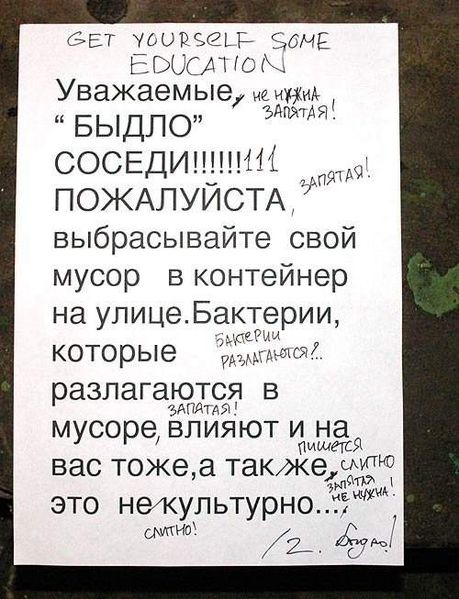 GET YOURSELF SOME
EDUCATION
Уважаемые, не нужна
ЗАПЯТАЯ!
“ БЫДЛО”
СОСЕДИ!!!!!!111
ПОЖАЛУЙСТА, ЗАПЯТАЯ!
выбрасывайте свой
мусор в контейнер
на улице.Бактерии,
которые БАКТЕРИИ
РАЗЛАГАЮТСЯ?..
разлагаются в
ЗАПАТАЯ!
мусоре, влияют и на
пишется
вас тоже,а так же, СЛИТНО
ЗАПЯТАЯ
НЕ НУЖНА!
это не культурно....
СЛИТНО!
/2. Быдло!